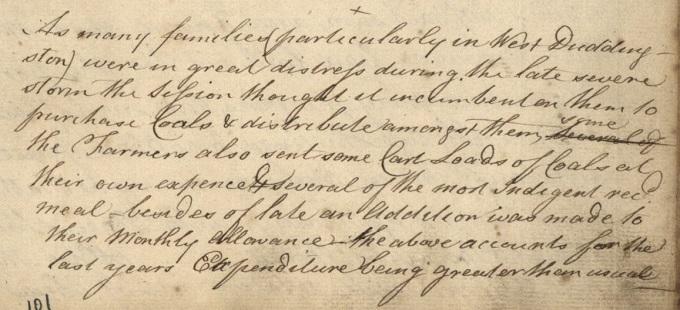 As many families (particularly in West Dudding-
ston) were in great distress during the late severe
storm the Session thought it incumbent on them to
purchase Coals & distribute amongst them, some
the Farmers also sent some Cart Loads of Coals at
their own expence & several of the most indigent rec'd
meal - besides of late an addition was made to
their Monthly allowance - the above accounts for the
last years Expenditure being greater than usual
101